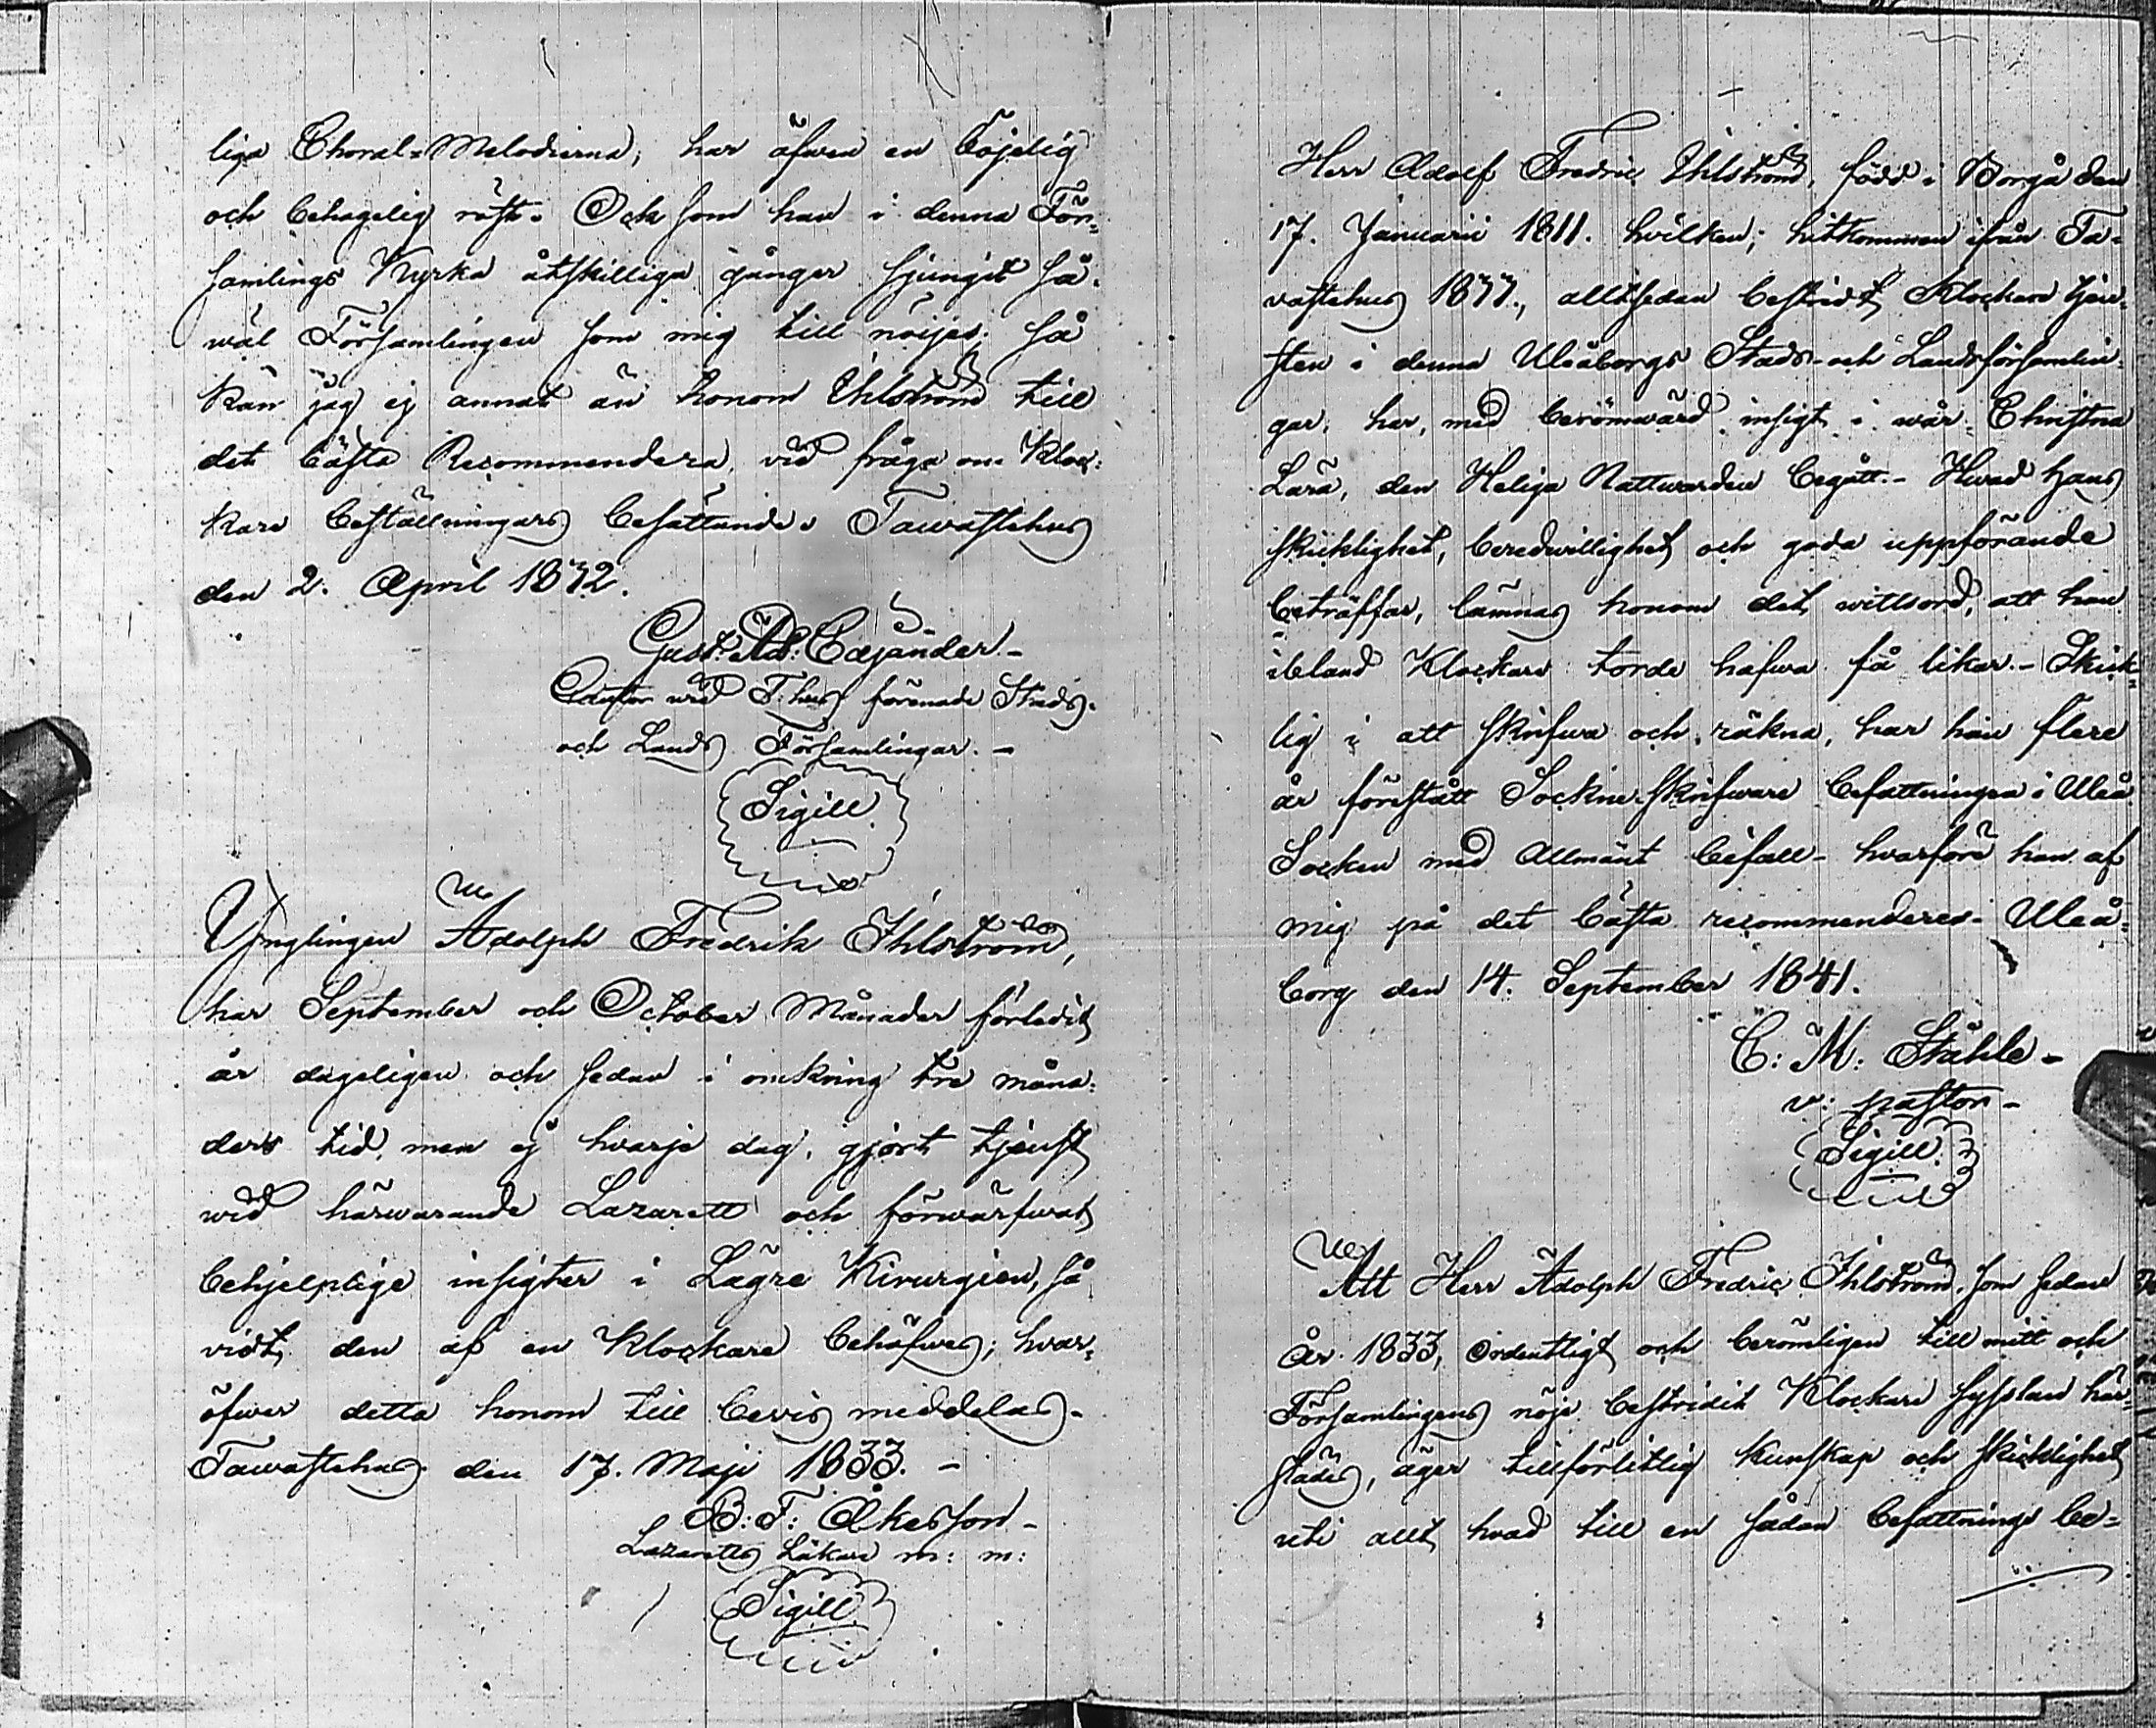 liga Choral=Melodierna; har äfwen en böjelig
och behagelig röst. Och som han i denna För=
samlings Kyrka åtskilliga gånger sjungit så=
wäl Församlingen som mig till nöijes. så
kan jag ej annat än honom Ihlström till
det bästa Recommendera, vid fråga om Kloc=
kare beställningars besättande. Tawastehus
den 2. April 1832.
Gust. Ad: Cajander.-
Pastor wid T:hus förenade Stads-
och Lands Församlingar. -
Sigill.
Ynglingen Adolph Fredrik Ihlström,
har September och October Månader förledit
år dageligen och sedan i omkring tre måna=
ders tid, men ej hvarje dag, gjort tjenst
wid härwarande Lazarett och förwärfwat
behjelplige insigter i Lägre Kirurgien, så
vidt den af en Klockare behöfwes; hvar=
öfwer detta honom till bevis meddelas.-
Tawastehus den 17. Maji 1833. -
B: F: Åkesson-
Lazaretts Läkare m: m:
Sigill.
Herr Adolf Fredric Ihlström, född i Borgå den
17. Januarii 1811. hvilken; hitkommen ifrån Ta=
vastehus 1833., alltsedan bestridt Klockare tjen=
sten i denna Uleåborgs Stads- och Landsförsamlin=
gar, har, med berömwärd insigt i wår Christna
Lära, den Heliga Nattwarden begått.- Hwad hans
skicklighet, beredwillighet och goda uppförande
beträffar, lämnas honom det wittsord, att han
ibland Klockare torde hafwa få likar.- Skick=
lig i att skrifwa och räkna, har han flere
år förestått Sockne-skrifware befattningen i Uleå
Socken med Allmänt bifall- hvarföre han af
mig på det bästa recommenderes- Uleå=
borg den 14. September 1841.
C: M: Ståhle-
v: pastor-
Sigill.
Att Herr Adolph Fredric Ihlström, som sedan
År 1833, ordentligt och berömligen till mitt och
Församlingens nöje bestridit Klockare sysslan här=
städes, äger tillförlitlig kunskap och skicklighet
uti allt hvad till en sådan befattnings be=